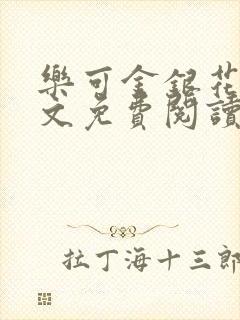 樂可金銀花
文免費閱讀
拉丁海十三郎